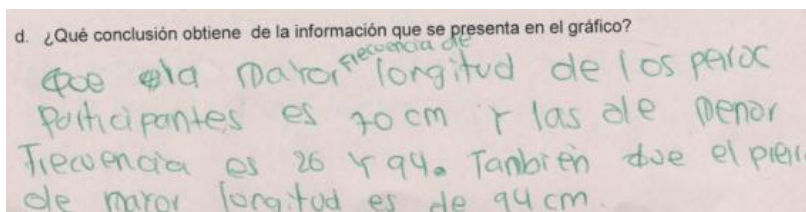 d. ¿Qué conclusión obtiene de la información que se presenta en el gráfico?
frecuencia de
Que la mayor longitud de los
participantes es 70 cm y las de menor
frecuencia es 26 y 94. Tanbien que el
de mayor longitud es de 94 cm.